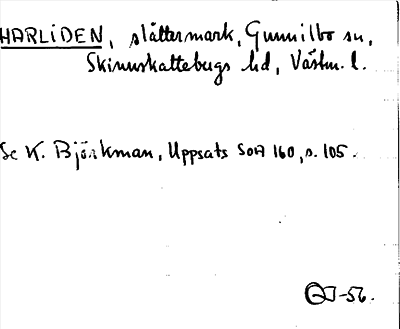 HARLIDEN, slåttermark, Gunnilbo sn,
Skinnskattebergs hd, Västm. l.
Se K. Björkman, Uppsats SOA 160, s. 105.
-56.